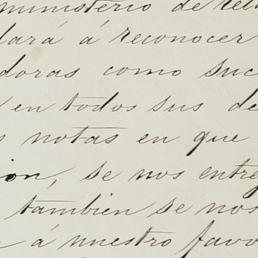 ministerio de
lará á reconocer
doras como suc
en todos sus de
notas en que
ion, se nos entre
tambien se nos
á nuestro favo